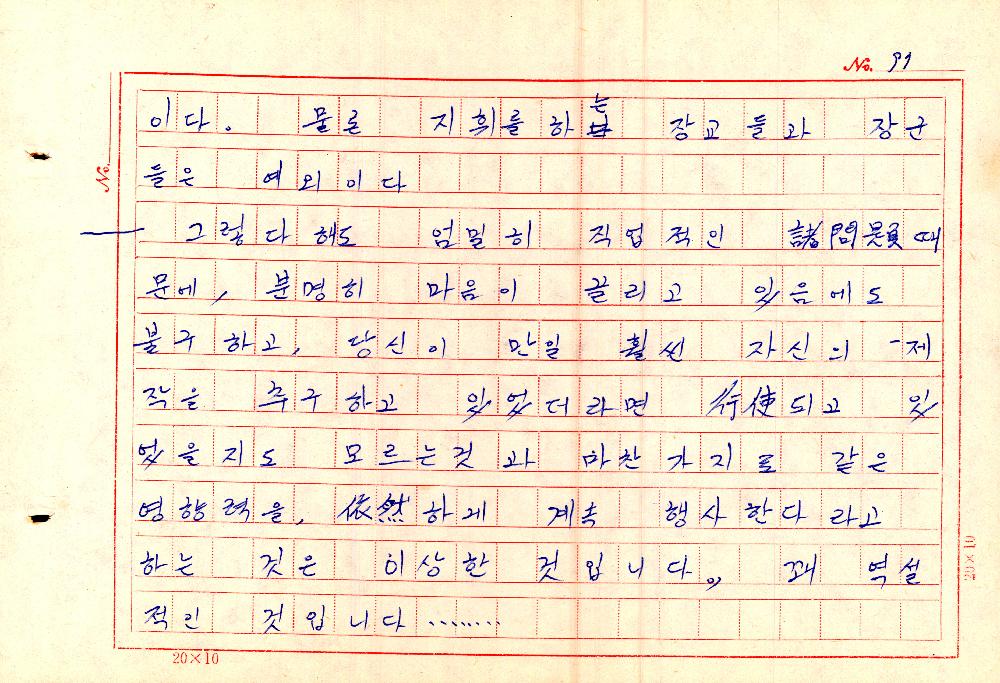 No. 91
No.
이다. 물론 지휘를 하는 장교들과 장군
들은 예외이다
그렇다해도 엄밀히 직업적인 諸問題때
문에, 분명히 마음이 끌리고 있음에도
불구하고, 당신이 만일 훨씬 자신의 제
작을 추구하고 있었더라면 行使되고 있
었을지도 모르는것과 마찬가지로 같은
영향력을, 依然하게 계속 행사한다라고
하는 것은 이상한 것입니다. 꽤 역설
적인 것입니다........
20×10
20×10